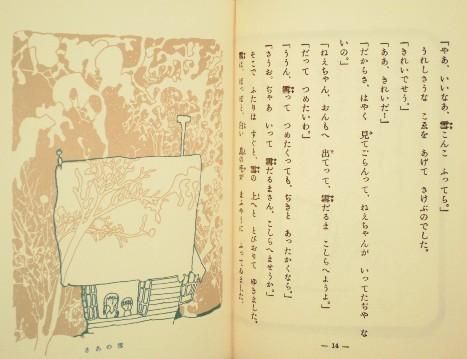 「やあ、いいなあ、雪こんこ ふってら。」
うれしさうな こゑを あげて さけぶのでした。
「きれいでせう。」
「ああ、きれいだ！」
「だからさ、はやく 見てごらんって、ねえちゃんが いってたぢや な
いの。」
「ねえちゃん、おんもへ 出てって、雪だるま こしらへようよ。」
「だって つめたいわ。」
「ううん、雪って つめたくっても、ぢきと あったかくなら。」
「さうお。ぢやあ いって 雪だるまさん、こしらへませうか。」
そこで ふたりは すぐと、雪の 上へと とびおりて ゆきました。
雪は、ぽっぽと、白い 鳥の まふやうに ふってゐました。
— 14 —
雪のあさ